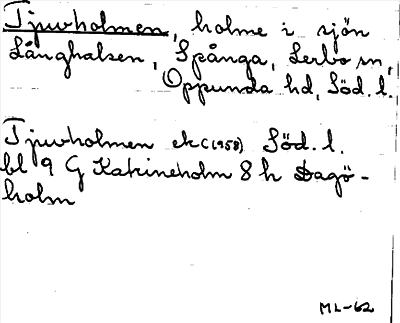 Tjuvholmen, holme i sjön
Långhalsen, Spånga, Lerbo sn,
Oppunda hd, Söd. l.
Tjuvholmen ek (1958) Söd. l.
bl 9 G Katrineholm 8 h Dagö-
holm
ML-62